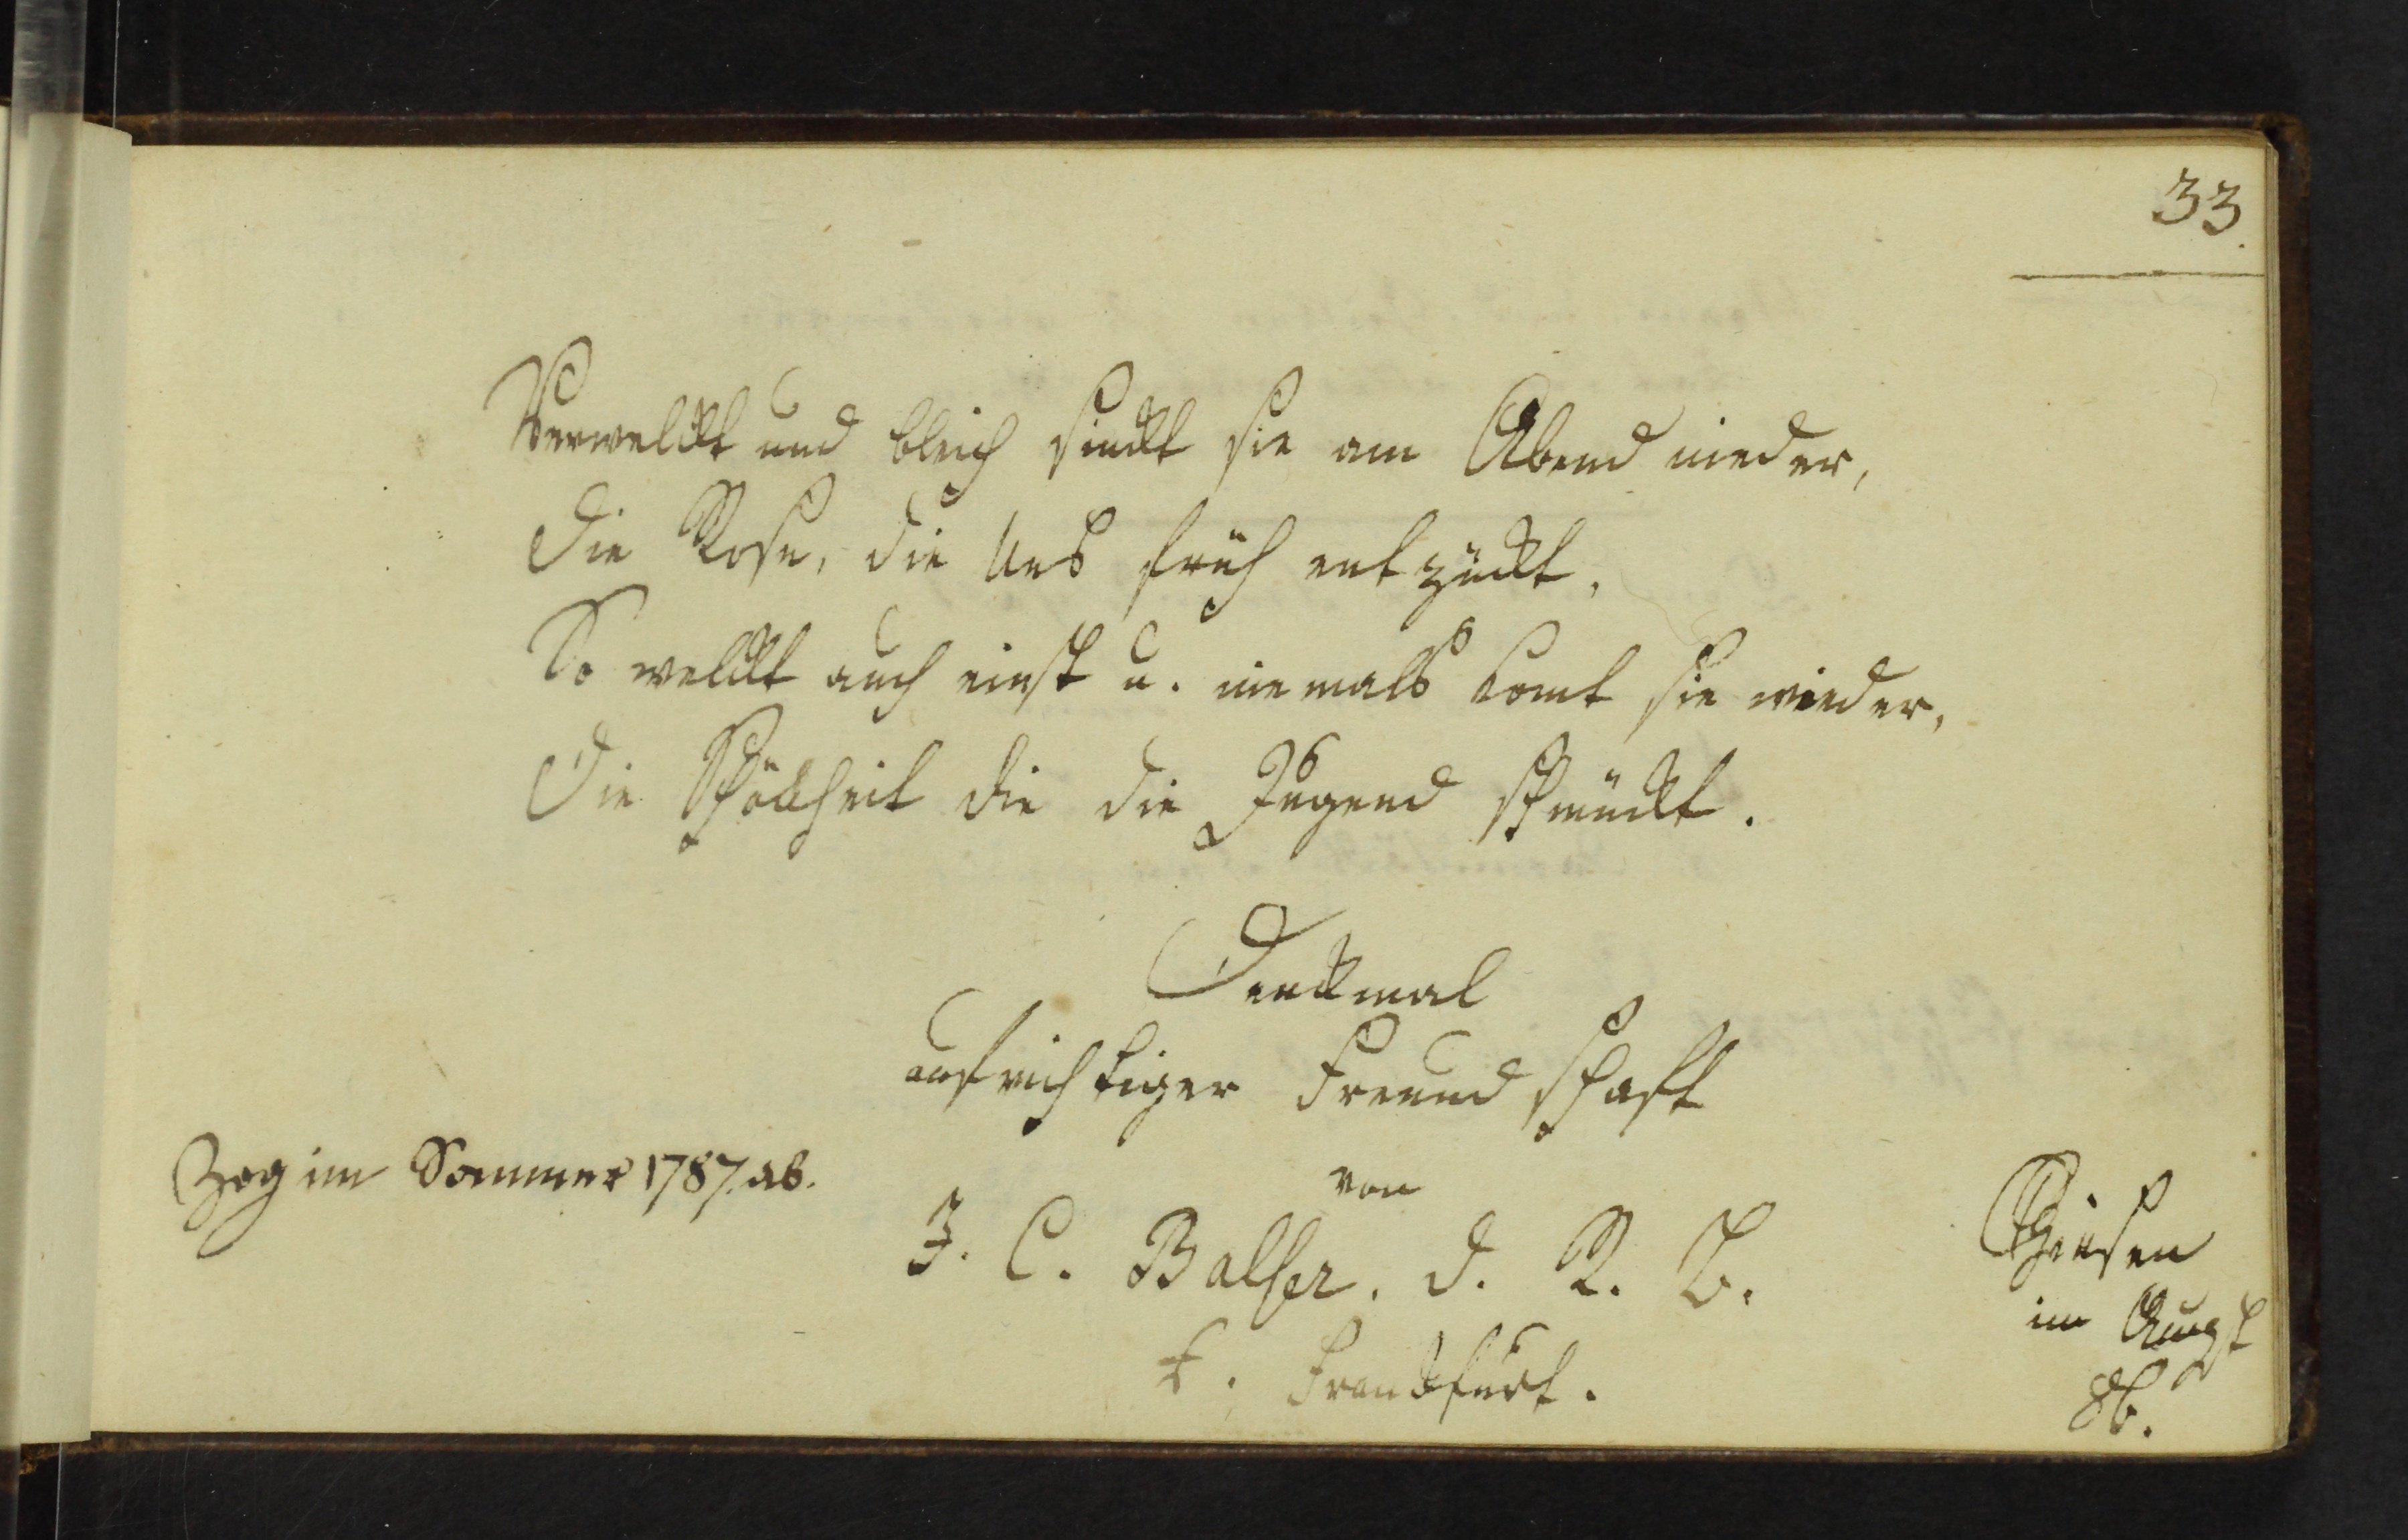 33.
Verwelckt und bleich sinckt sie am Abend nieder,
Die Rose, die Uns früh entzückt,
So welckt auch einst u. niemals komt sie wieder,
Die Schönheit die die Jugend schmückt.
Denckmal
aufrichtiger Freundschaft
von
J. C. Balser. d. R. B.
f. Franckfurt.
Zog im Sommer 1787. ab.
Giesen
im Augst
86.